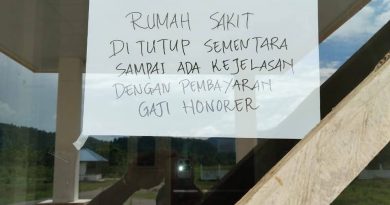 RUMAH SAKIT
DI TUTUP SEMENTARA
SAMPAI ADA KEJELASAN
DENGAN PEMBAYARAN
GAJI HONORER